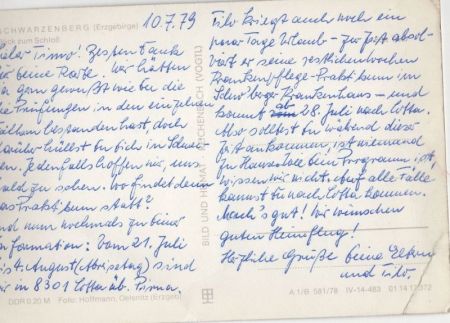 SCHWARZENBERG (Erzgebirge)
Blick zum Schloß
10.7.79
Timo! Besten Dank
für Deine Karte. Wir hätten
ja gern gewußt wie Du die
die Prüfungen in den einzelnen
Fächern bestanden hast, doch
hüllst Du Dich in Schwei-
gen. Jedenfalls hoffen wir, uns
bald zu sehen. Wo findet denn
das Praktikum statt?
Und nun nochmals zu Deiner
Information: Vom 21. Juli
bis 4. August (Abreisetag) sind
wir in 8301 Lotta üb. Pirna.
DDR 0,20 M Foto: Hoffmann, Oelsnitz (Erzgeb)
BILD UND HEIMAT REICHENBACH (VOGTL)
Tilo kriegt auch noch ein
paar Tage Urlaub – zur Zeit absol-
viert er seine restlichen Wochen
Krankenpflege-Praktikum im
Krankenhaus – und
kommt ab 28. Juli nach Lotta.
Also solltest Du während dieser
Zeit ankommen, ist niemand
zu Hause. Wie Dein Programm ist,
wissen wir nicht. Auf alle Fälle
kannst Du nach Lotta kommen.
Mach's gut! Wir wünschen
guten Heimflug!
Herzliche Grüße Deine Eltern
und Tilo.
A 1/B 581/78 IV-14-483 01 14 12 372